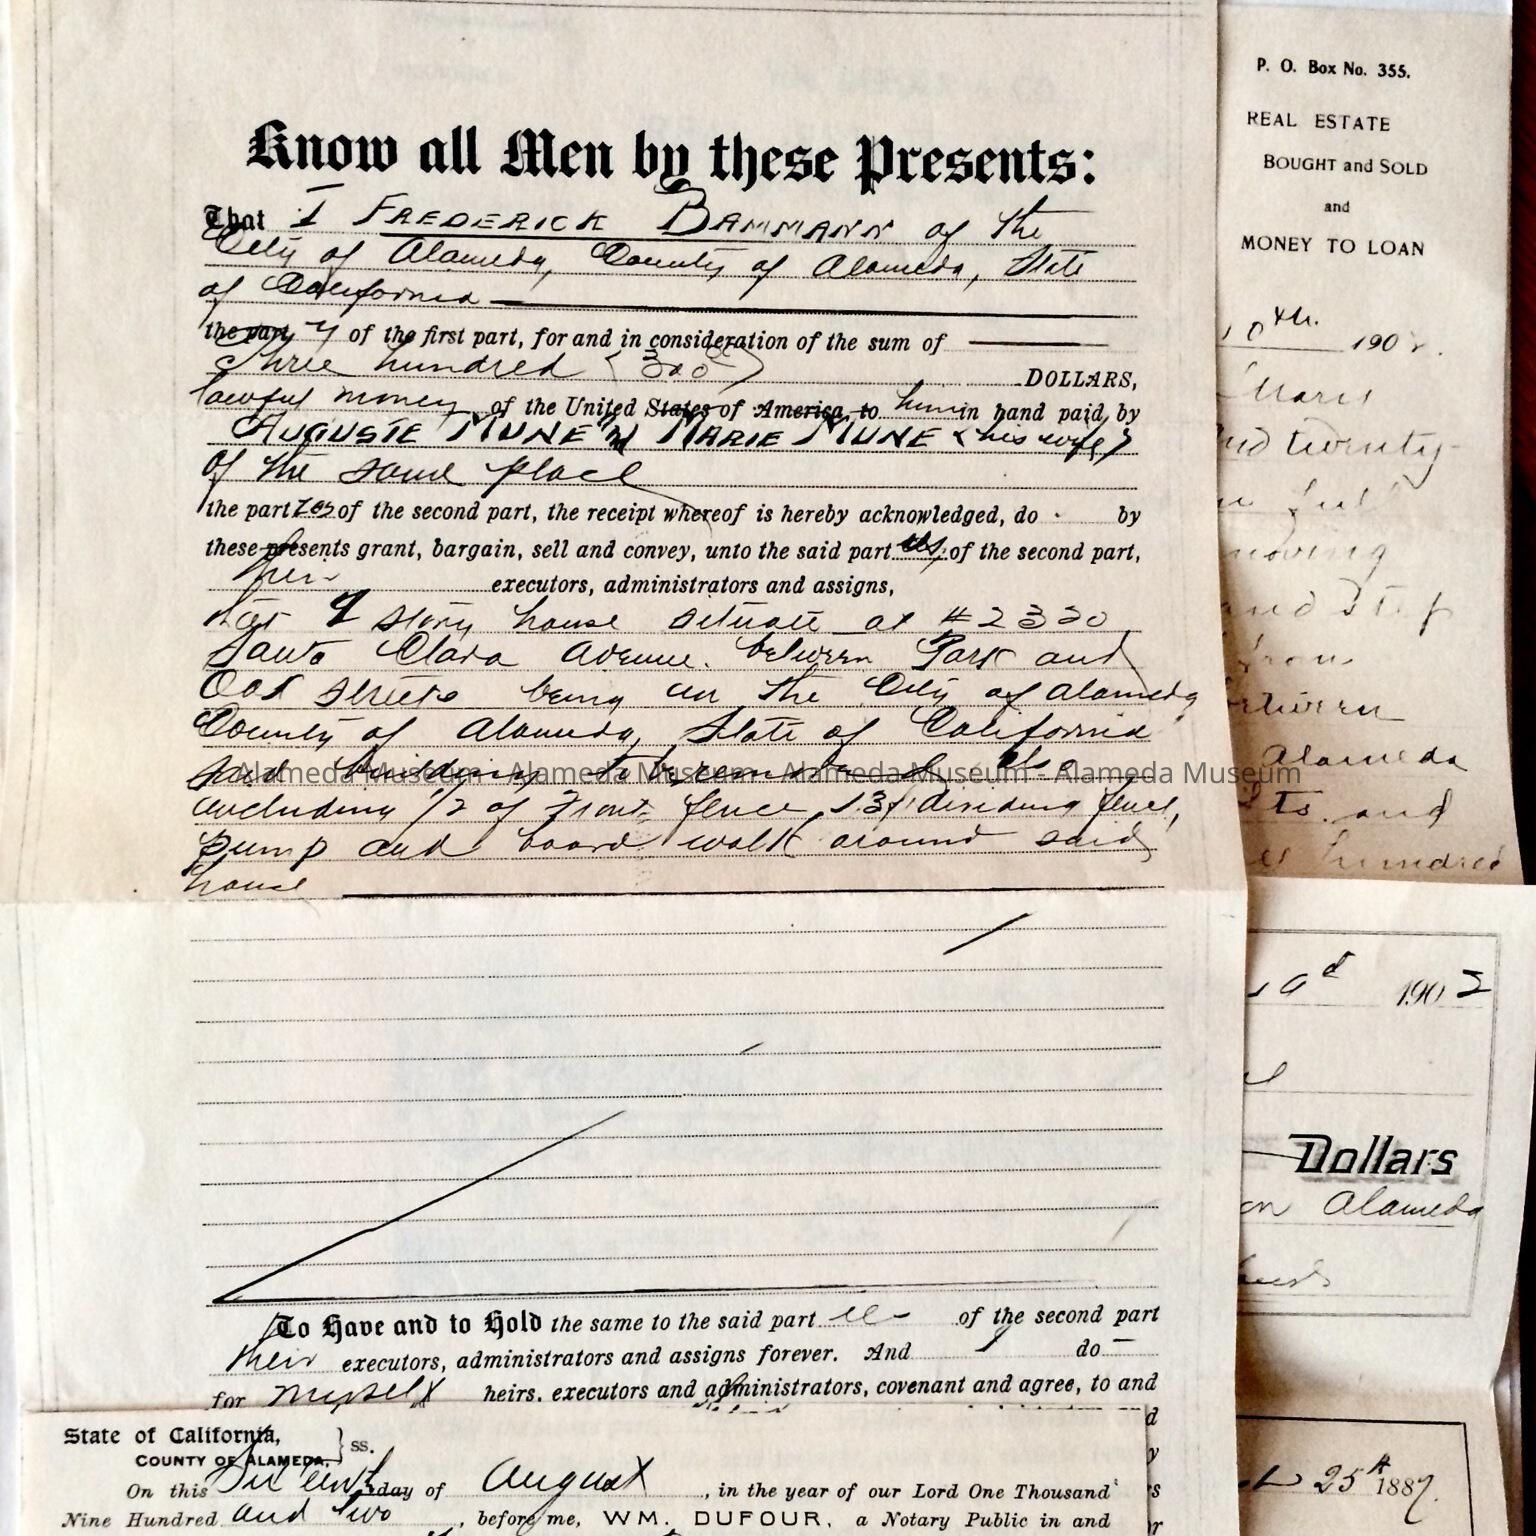 Know all Men by these Presents:
That I FREDERICK BAMMANN of the
City of Alameda, County of Alameda, State
of California
the party of the first part, for and in consideration of the sum of
Three hundred (300) DOLLARS,
lawful money of the United States of America, to him in hand paid by
AUGUSTE MUNE nd MARIE MUNE (his wife)
of the same place
the parties of the second part, the receipt whereof is hereby acknowledged, do by
these presents grant, bargain, sell and convey, unto the said parties of the second part,
their executors, administrators and assigns,
story house situate at #2320
Santa Clara Avenue. between Park and
Oak streets being in the City of Alameda
County of Alameda, State of California
said building to be
including 1/2 of front fence, dividing fence,
pump and board walk around said
house
To Have and to Hold the same to the said part ies of the second part
their executors, administrators and assigns forever. And I do
for myself heirs, executors and administrators, covenant and agree, to and
State of California,
COUNTY OF ALAMEDA, } ss.
On this day of August, in the year of our Lord One Thousand
Nine Hundred and two, before me, WM. DUFOUR, a Notary Public in and
P. O. Box No. 355.
REAL ESTATE
BOUGHT and SOLD
and
MONEY TO LOAN
10th. 1902.
Marie
and twenty-
full
moving
and step
from
between
Alameda
and
hundred
1902
Dollars
on Alameda
25th 1887.
Alameda Museum - Alameda Museum - Alameda Museum - Alameda Museum